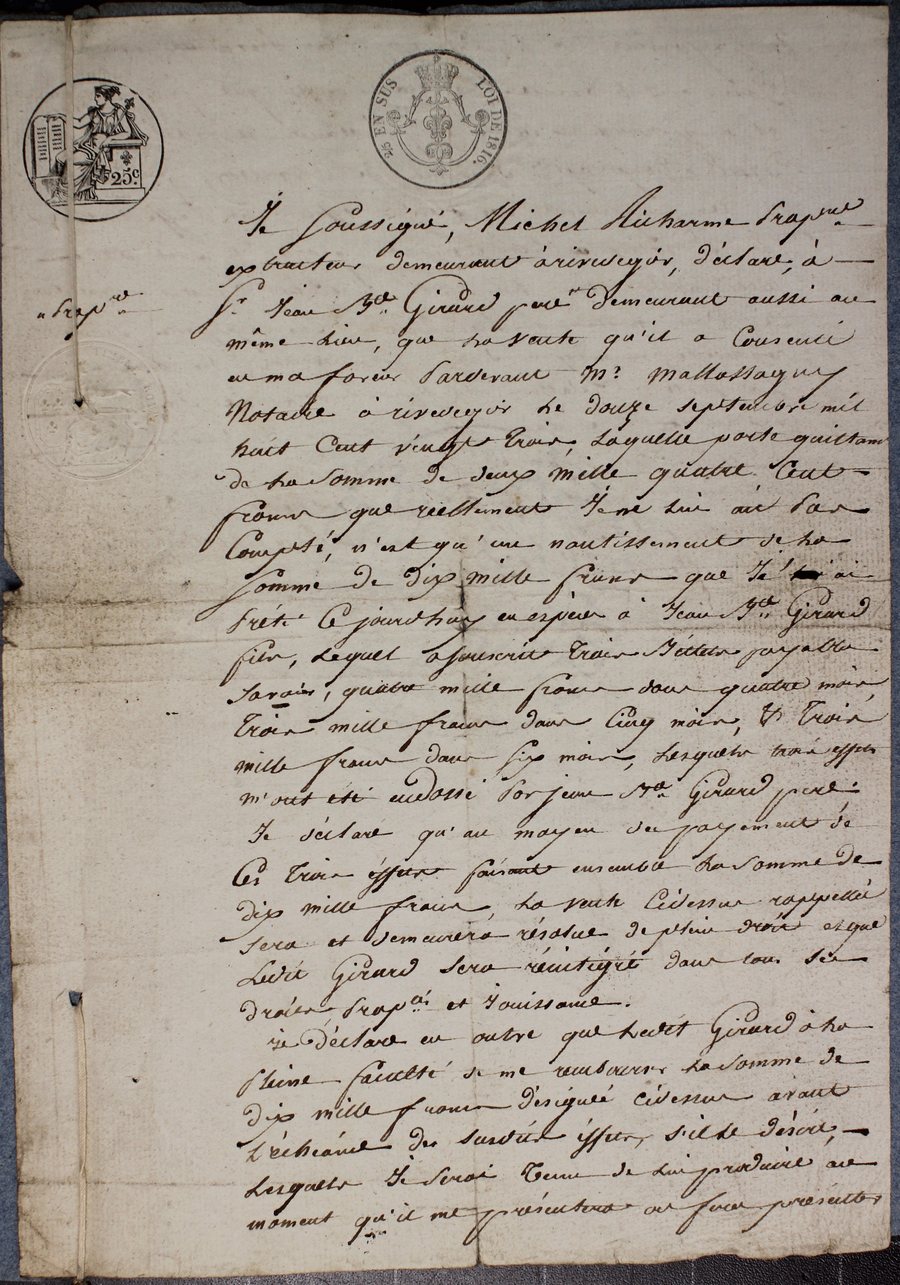 25 EN SUS LOI DE 1816.
25c
Je Soussigné, Michel Richarme Prop.re
extracteur demeurant à rivedegier, déclare, à
Sr. Jean B.te Girard pere " demeurant aussi au
" Prop.re
même Lieu, que La Vente qu'il a Consenti
en ma faveur Pardevant Mr.
Notaire à rivedegier Le douze septembre mil
huit Cent vingt Trois, Laquelle porte quittance
de La Somme de deux mille quatre Cent
francs que réellement Je ne Lui ai Pas
Compté, n'est qu'un nantissement de La
Somme de dix mille francs que Je ai
Prété Ce jourd'huy en espèces à Jean B.te Girard
fils, Lequel a souscrit Trois Billets payable
Savoir, quatre mille francs dans quatre mois,
Trois mille francs dans Cinq mois, & Trois
mille francs dans Six mois, Lesquels trois effets
m'ont été endossé Par jean B.te Girard pere.
Je déclare qu'au moyen du payement de
Ces Trois effets faisant ensemble La Somme de
dix mille francs, La Vente Cidessus rappellée
Sera et demeurera résolue de plein droit et que
Ledit Girard sera réintégré dans tous ses
droits Prop.és et Jouissance.
Je Déclare en outre que Ledit Girard à La
Pleine faculté de me rembourser La Somme de
dix mille francs désignée Cidessus avant
L'échéance des susdits effets, s'il Le désire,
Lesquels Je Serai Tenu de Lui produire au
moment qu'il me présentera ou fera présenter